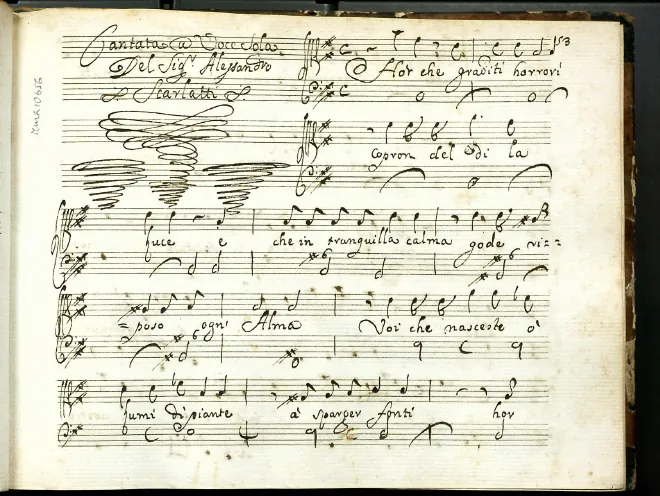 Cantata a Voce Sola
Del Sigr. Alessandro
Scarlatti
153
Hor che graditi horrori
copron del dì la
luce e che in tranquilla calma gode ri=
=poso ogni Alma Voi che nasceste ò
fumi di piante à sparger fonti hor